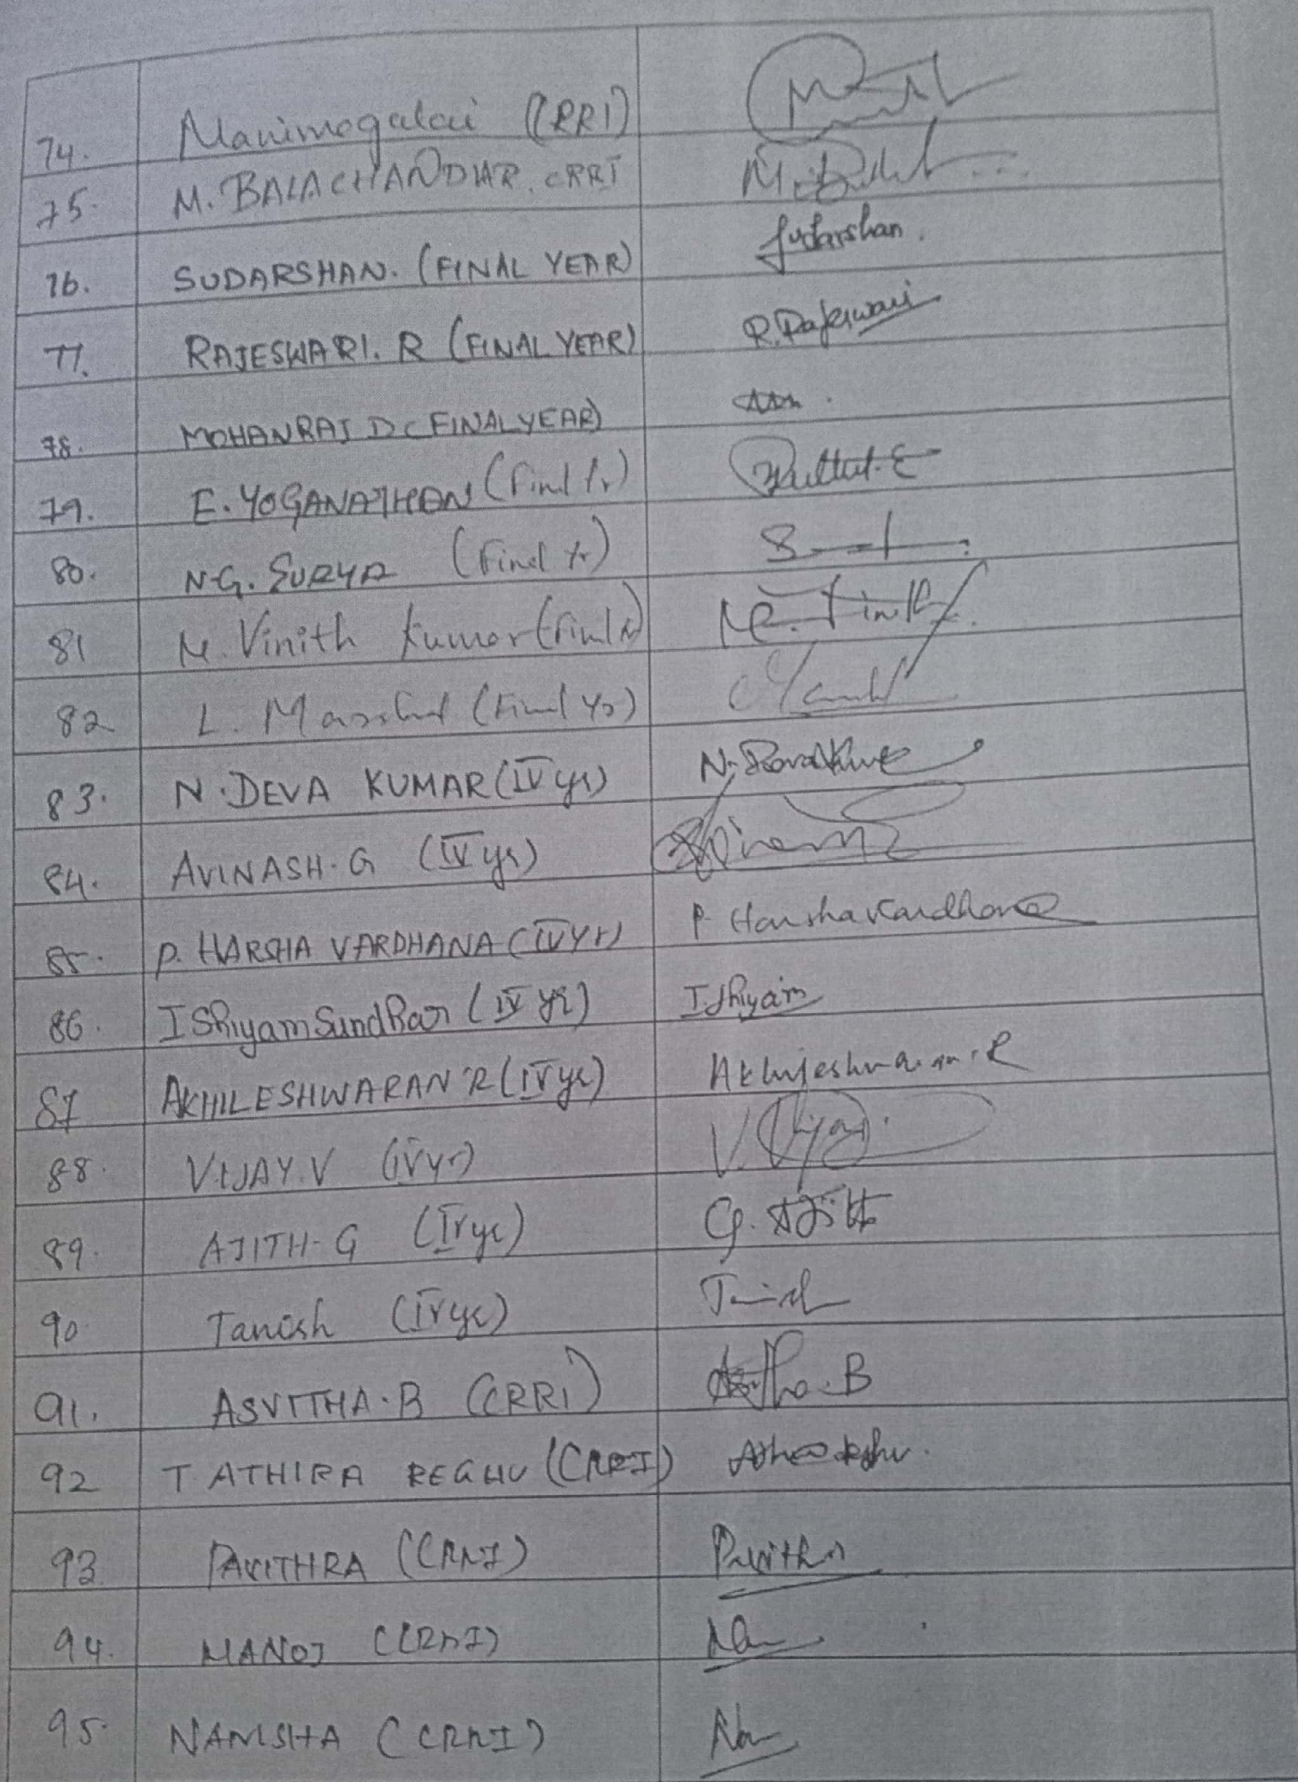 74. Manimogalai (CRRI)
75. M. BALACHANDHAR. CRRI
76. SUDARSHAN. (FINAL YEAR) Sudarshan.
77. RAJESWARI. R (FINAL YEAR) R. Rajeswari
78. MOHANRAJ D (FINAL YEAR)
79. E. YOGANATHAN (Final Yr)
80. N.G. SURYA (Final Yr)
81 M. Vinith Kumar (Final Yr) M. Vinith
82 L. (Final Yr)
83. N. DEVA KUMAR (IV yr) N. Devakumar
84. AVINASH. G (IV yr)
85. P. HARSHA VARDHANA (IV Yr) P. Harshavardhana
86. I Shiyam Sundhar (IV yr) I. Shiyam
87 AKHILESHWARAN R (IV yr) Akhileshwaran. R
88. VIJAY. V (IV yr) V. Vijay.
89. AJITH. G (IV yr) G. Ajith
90 Tanish (IV yr) Tanish
91. ASVITHA. B (CRRI) B
92 T ATHIRA REGHU (CRRI)
93 PAVITHRA (CRRI) Pavithra
94. MANOJ (CRRI)
95. NAMSHA (CRRI)